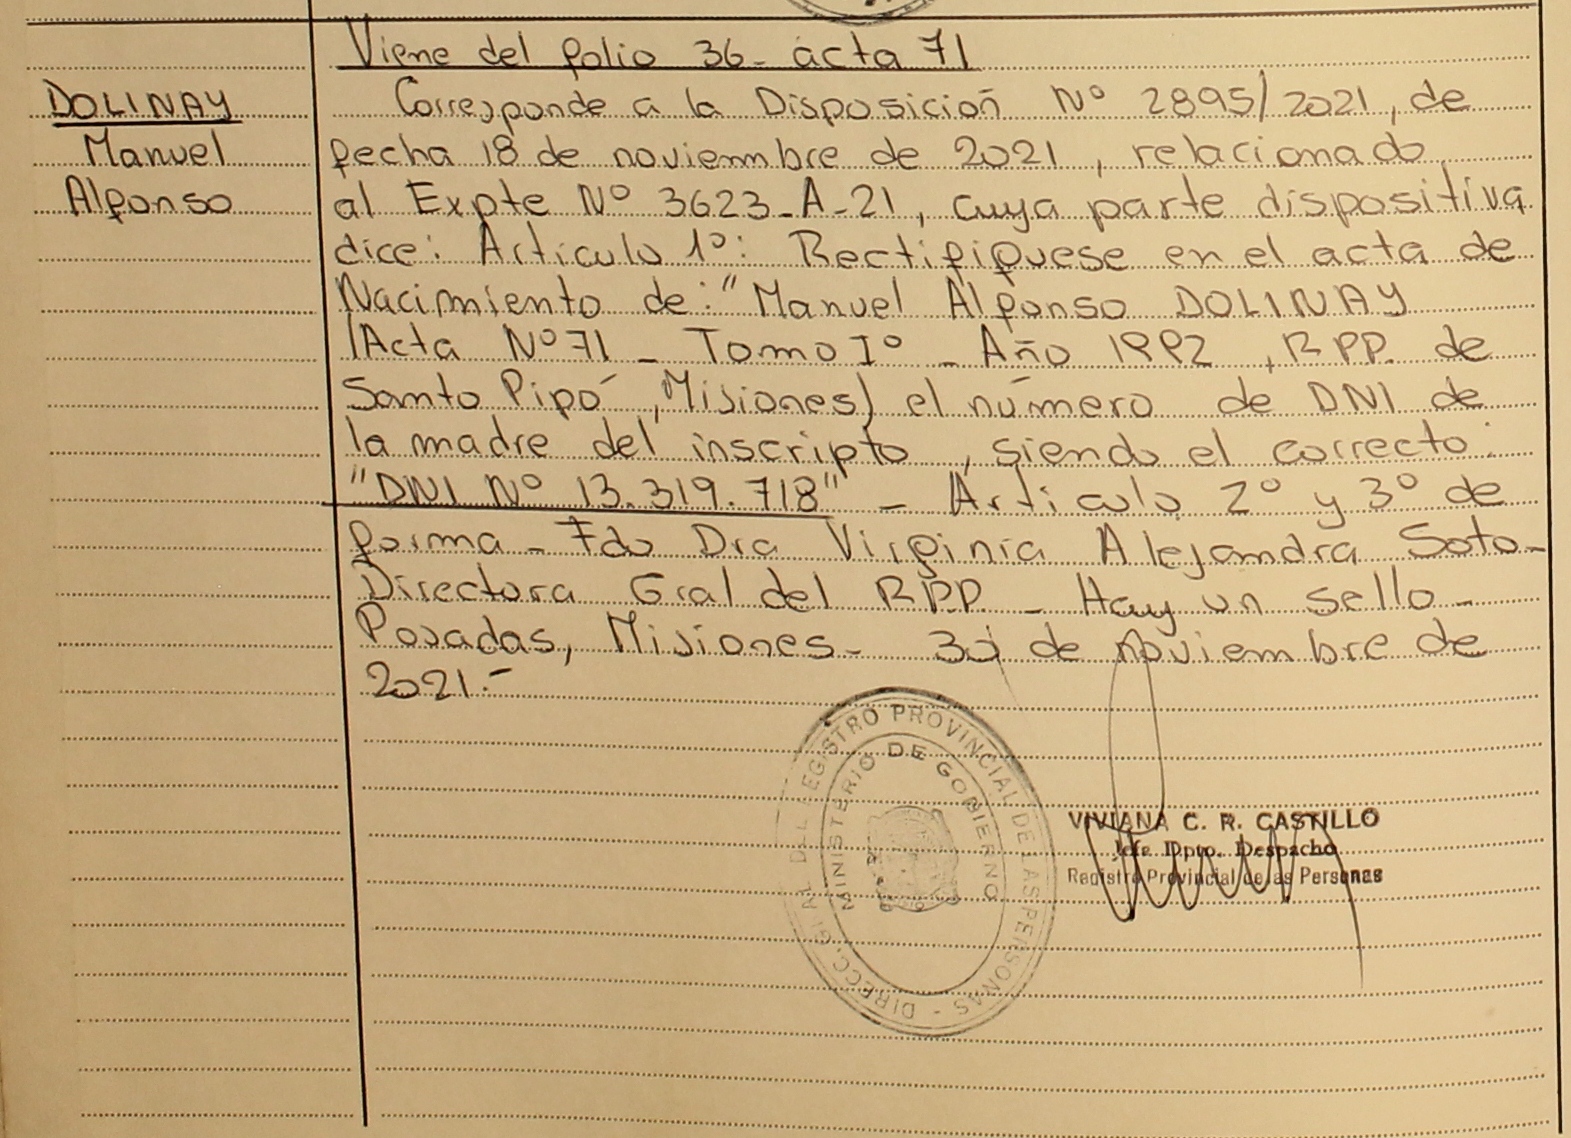 Viene del folio 36- acta 71
DOLINAY
Manuel
Alfonso
Corresponde a la Disposición Nº 2895/2021, de
fecha 18 de noviembre de 2021, relacionado
al Expte Nº 3623-A-21, cuya parte dispositiva
dice: Artículo 1º: Rectifíquese en el acta de
Nacimiento de: "Manuel Alfonso DOLINAY
(Acta Nº 71 - Tomo Iº - Año 1992, RPP. de
Santo Pipó, Misiones) el número de DNI de
la madre del inscripto, siendo el correcto:
"DNI Nº 13.319.718" - Artículo 2º y 3º de
forma - Fdo Dra Virginia Alejandra Soto-
Directora Gral del RPP. - Hay un sello-
Posadas, Misiones- 30 de noviembre de
2021.-
DIRECC. GRAL. DEL REGISTRO PROVINCIAL DE LAS PERSONAS -
MINISTERIO DE GOBIERNO
VIVIANA C. R. CASTILLO
Jefe Dpto. Despacho
Registro Provincial de las Personas